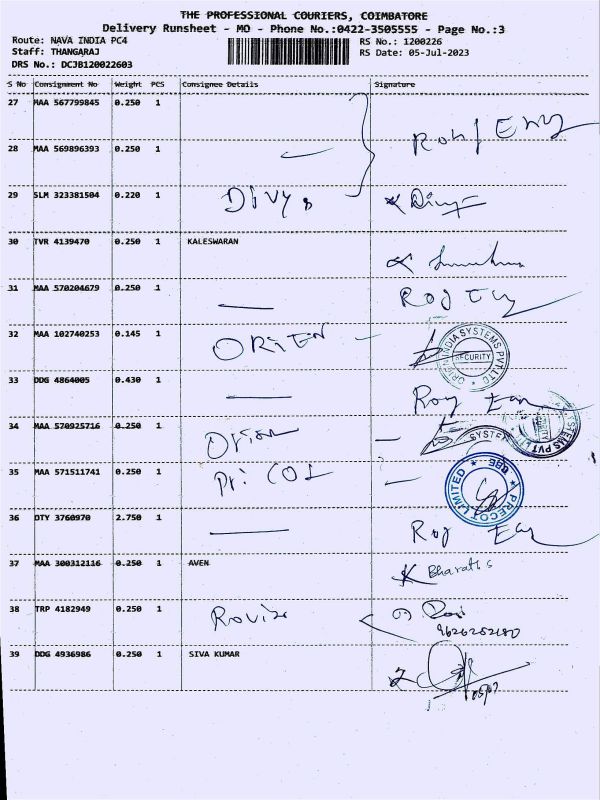 THE PROFESSIONAL COURIERS, COIMBATORE
Delivery Runsheet - MO - Phone No.:0422-3505555 - Page No.:3
Route: NAVA INDIA PC4 RS No.: 1200226
Staff: THANGARAJ RS Date: 05-Jul-2023
DRS No.: DCJB120022603
S No Consignment No Weight PCS Consignee Details Signature
27 MAA 567799845 0.250 1
28 MAA 569896393 0.250 1
29 SLM 323381504 0.220 1 Divya
30 TVR 4139470 0.250 1 KALESWARAN
31 MAA 570204679 0.250 1
32 MAA 102740253 0.145 1 ORIEN
ORIGIN INDIA SYSTEMS PVT.LTD
SECURITY
33 DDG 4864005 0.430 1
34 MAA 570925716 0.250 1
SYSTEMS PVT
35 MAA 571511741 0.250 1 Pri COL
PRECOT LIMITED
36 DTY 3760970 2.750 1
37 MAA 300312116 0.250 1 AVEN Bharath S
38 TRP 4182949 0.250 1
39 DDG 4936986 0.250 1 SIVA KUMAR